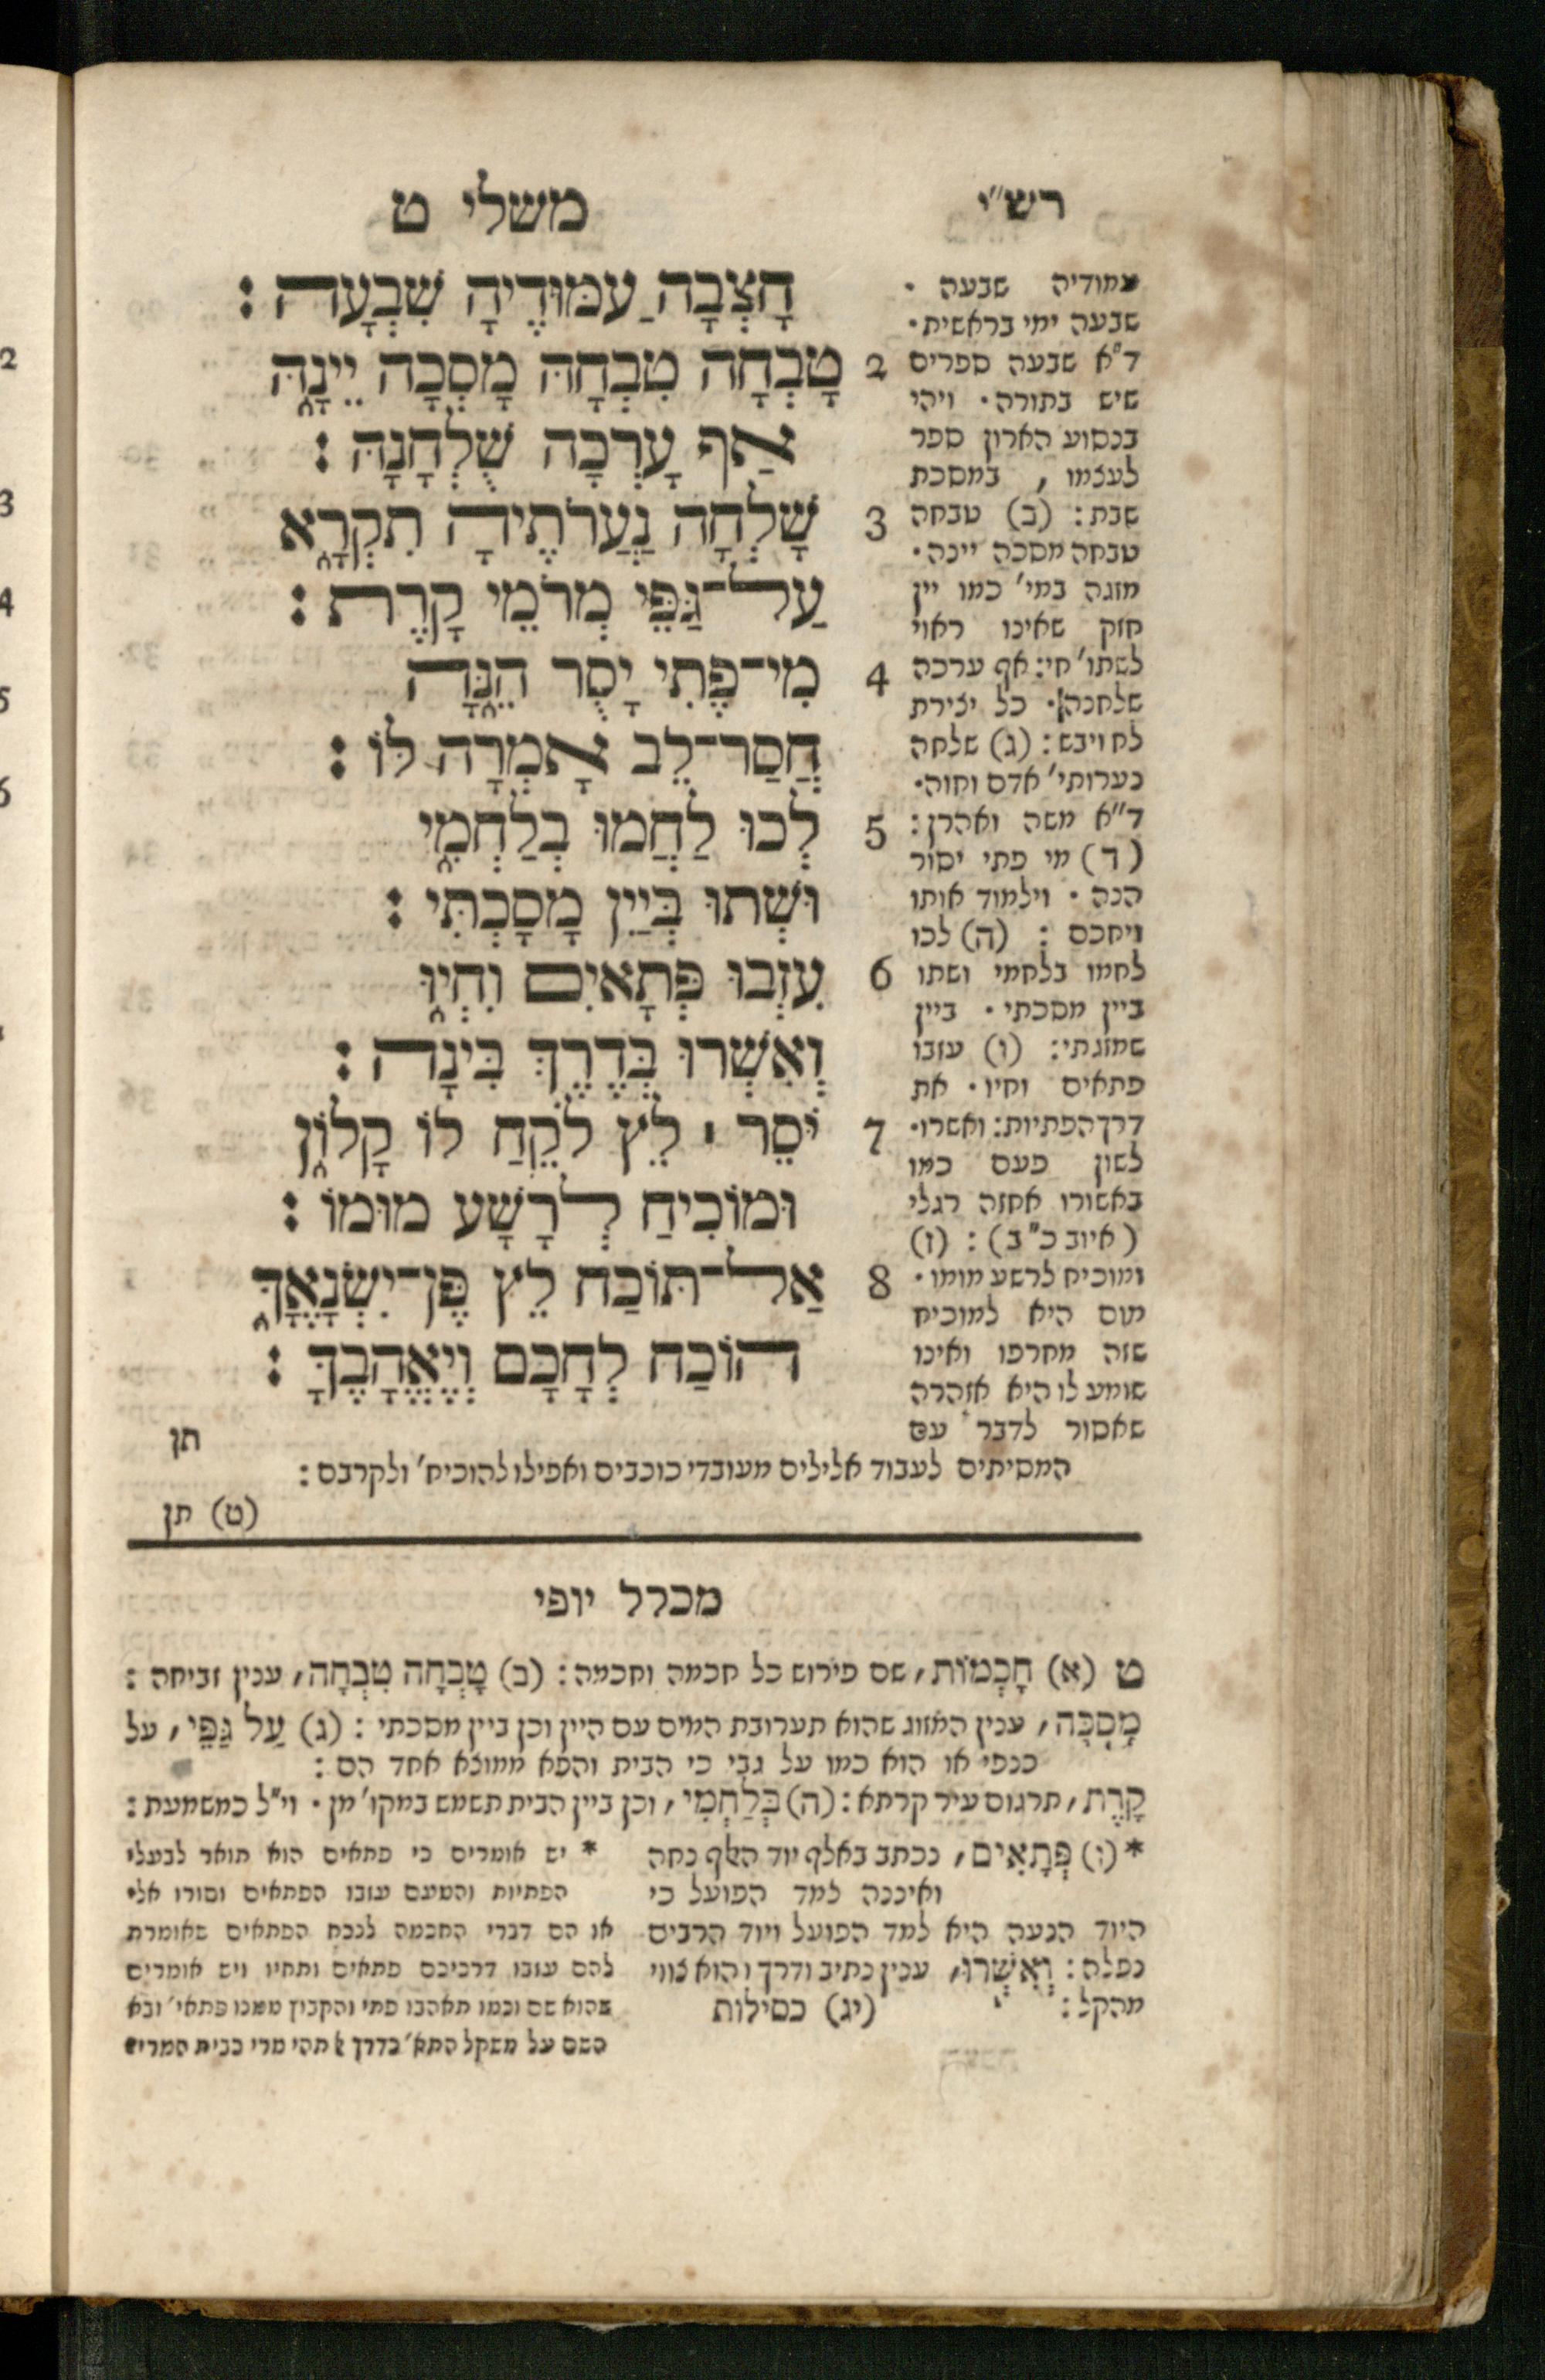 רש״י
משלי ט
עמודיה שבעה ·
שבעה ימי בראשית·
ד״א שבעה ספרים
שיש בתורה· ויהי
בנסוע הארון ספר
לעצמו, במסכת
שבת: (ב) טבחה
טבחה מסכה יינה·
מזגה במי׳ כמו יין
חזק שאינו ראוי
לשתו׳ חי: אף ערכה
שלחנה· כל יצירת
לח ויבש: (ג) שלחה
נערותי׳ אדם וחוה·
ד״א משה ואהרן:
(ד) מי פתי יסור
הנה · וילמוד אותו
ויחכם : (ה) לכו
לחמו בלחמי ושתו
ביין מסכתי · ביין
שמזגתי: (ו) עזבו
פתאים וחיו · את
דרך הפתיות: ואשרו·
לשון פעם כמו
באשורו אחזה רגלי
(איוב כ״ב) : (ז)
ומוכיח לרשע מומו ·
מום היא למוכיח
שזה מחרפו ואינו
שומע לו היא אזהרה
שאסור לדבר עם
המסיתים לעבוד אלילים מעובדי כוכבים ואפילו להוכיח׳ ולקרבם :
(ט) תן
חָצְבָה עַמּוּדֶיהָ שִׁבְעָה :
2 טָבְחָה טִבְחָהּ מָסְכָה יֵינָהּ
אַף עָרְכָה שֻׁלְחָנָהּ :
3 שָׁלְחָה נַעֲרֹתֶיהָ תִקְרָא
עַל־גַּפֵּי מְרֹמֵי קָרֶת :
4 מִי־פֶתִי יָסֻר הֵנָּה
חֲסַר־לֵב אָמְרָה לּוֹ :
5 לְכוּ לַחֲמוּ בְלַחְמִי
וּשְׁתוּ בְּיַיִן מָסָכְתִּי :
6 עִזְבוּ פְתָאיִם וִחְיוּ
וְאִשְׁרוּ בְּדֶרֶךְ בִּינָה :
7 יֹסֵר ׀ לֵץ לֹקֵחַ לוֹ קָלוֹן
וּמוֹכִיחַ לְרָשָׁע מוּמוֹ :
8 אַל־תּוֹכַח לֵץ פֶּן־יִשְׂנָאֶךָּ
הוֹכַח לְחָכָם וְיֶאֱהָבֶךָּ :
תן
מכלל יופי
ט (א) חָכְמוֹת, שם פירוש כל חכמה וחכמה: (ב) טָבְחָה טִבְחָה, ענין זביחה :
מָסְכָה, ענין המזוג שהוא תערובת המים עם היין וכן ביין מסכתי : (ג) עַל גַּפֵּי, על
כנפי או הוא כמו על גבי כי הבית והפא ממוצא אחד הם :
קָרֶת, תרגום עיר קרתא: (ה) בְּלַחְמִי, וכן ביין הבית תשמש במקו׳ מן · וי״ל כמשמעת :
* (ו) פְּתָאִים, נכתב באלף יוד האלף נחה
ואיננה למד הפועל כי
היוד הנעה היא למד הפועל ויוד הרבים
נפלה: וְאִשְׁרוּ, ענין נתיב ודרך והוא צווי
מהקל: (יג) כסילות
* יש אומרים כי פתאים הוא תואר לבעלי
הפתיות והטעם עזבו הפתאים וסורו אלי
או הם דברי החכמה לנכח הפתאים שאומרת
להם עזבו דרכיכם פתאים ותחיו ויש אומרים
שהוא שם וכמו תאהבו פתי והקבוץ ממנו פתאי׳ ובא
השם על משקל התא׳ בדרך אל תהי מרי כבית המרי׃